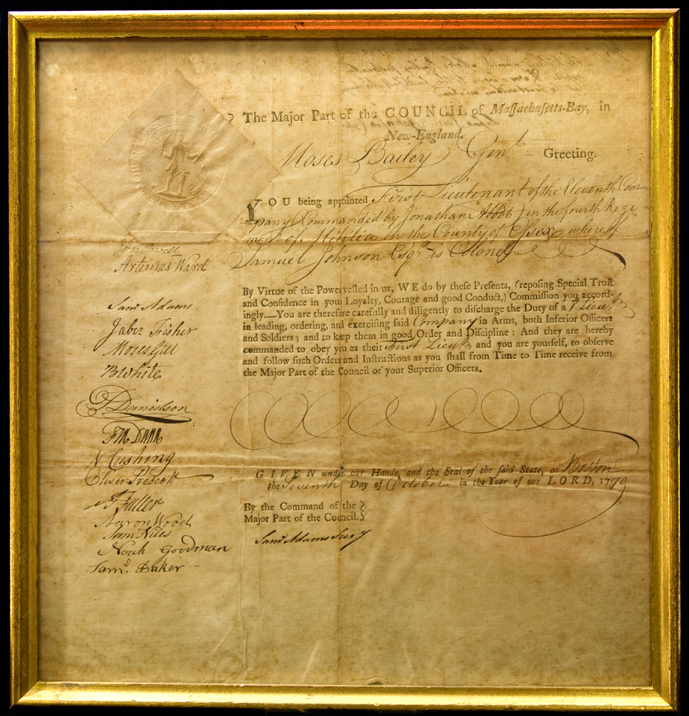 The Major Part of the COUNCIL of Massachusetts-Bay, in
New-England.
Moses Bailey Gent Greeting.
YOU being appointed First Lieutenant of the Eleventh Com-
pany Commanded by Jonathan Abbot in the fourth Regi-
ment of Militia in the County of Essex whereof
Samuel Johnson Esqr. is Colonel
By Virtue of the Power vested in us, WE do by these Presents, (reposing Special Trust
and Confidence in you Loyalty, Courage and good Conduct,) Commission you accord-
ingly.—You are therefore carefully and diligently to discharge the Duty of a Lieut
in leading, ordering, and exercising said Company in Arms, both Inferior Officers
and Soldiers; and to keep them in good Order and Discipline: And they are hereby
commanded to obey you as their First Lieut and you are yourself, to observe
and follow such Orders and Instructions as you shall from Time to Time receive from
the Major Part of the Council or your Superior Officers.
GIVEN under our Hands, and the Seal of the said State, at Boston
the Seventh Day of October in the Year of our LORD, 1779
By the Command of the
Major Part of the Council.
Saml Adams Secy
Artemas Ward
Saml Adams
Jabez Fisher
Moses Gill
B White
Danielson
N Cushing
Oliver Prescott
Fuller
Aaron Wood
Saml Niles
Noah Goodman
Saml. Baker